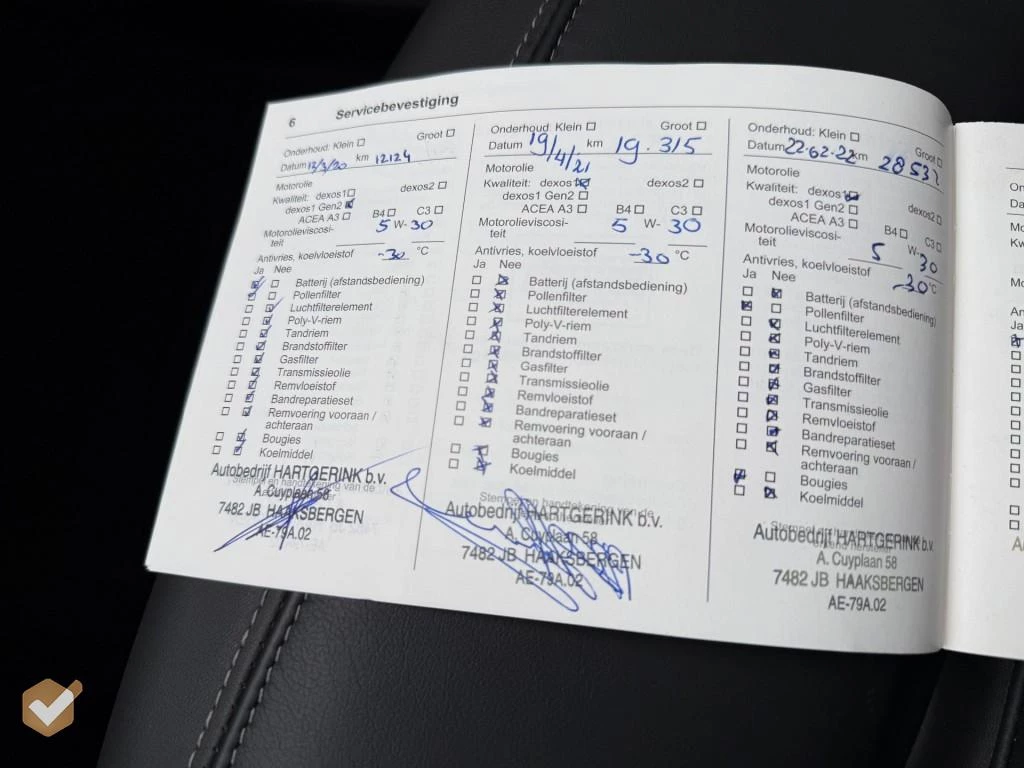 6 Servicebevestiging
Onderhoud: Klein Groot
Datum 13/3/20 km 12124
Motorolie
Kwaliteit: dexos1 dexos2
dexos1 Gen2
ACEA A3 B4 C3
Motorolieviscosi-
teit 5 W- 30
Antivries, koelvloeistof -30 °C
Ja Nee
Batterij (afstandsbediening)
Pollenfilter
Luchtfilterelement
Poly-V-riem
Tandriem
Brandstoffilter
Gasfilter
Transmissieolie
Remvloeistof
Bandreparatieset
Remvoering vooraan /
achteraan
Bougies
Koelmiddel
Stempel en handtekening van de
Autobedrijf HARTGERINK b.v.
A. Cuyplaan 58
7482 JB HAAKSBERGEN
AE-79A.02
Onderhoud: Klein Groot
Datum 19/4/21 km 19.315
Motorolie
Kwaliteit: dexos1 dexos2
dexos1 Gen2
ACEA A3 B4 C3
Motorolieviscosi-
teit 5 W- 30
Antivries, koelvloeistof -30 °C
Ja Nee
Batterij (afstandsbediening)
Pollenfilter
Luchtfilterelement
Poly-V-riem
Tandriem
Brandstoffilter
Gasfilter
Transmissieolie
Remvloeistof
Bandreparatieset
Remvoering vooraan /
achteraan
Bougies
Koelmiddel
Stempel en handtekening van de
Autobedrijf HARTGERINK b.v.
A. Cuyplaan 58
7482 JB HAAKSBERGEN
AE-79A.02
Onderhoud: Klein Groot
Datum 22-02-22 km 28532
Motorolie
Kwaliteit: dexos1 dexos2
dexos1 Gen2
ACEA A3 B4 C3
Motorolieviscosi-
teit 5 W- 30
Antivries, koelvloeistof -30 °C
Ja Nee
Batterij (afstandsbediening)
Pollenfilter
Luchtfilterelement
Poly-V-riem
Tandriem
Brandstoffilter
Gasfilter
Transmissieolie
Remvloeistof
Bandreparatieset
Remvoering vooraan /
achteraan
Bougies
Koelmiddel
Autobedrijf HARTGERINK b.v.
A. Cuyplaan 58
7482 JB HAAKSBERGEN
AE-79A.02